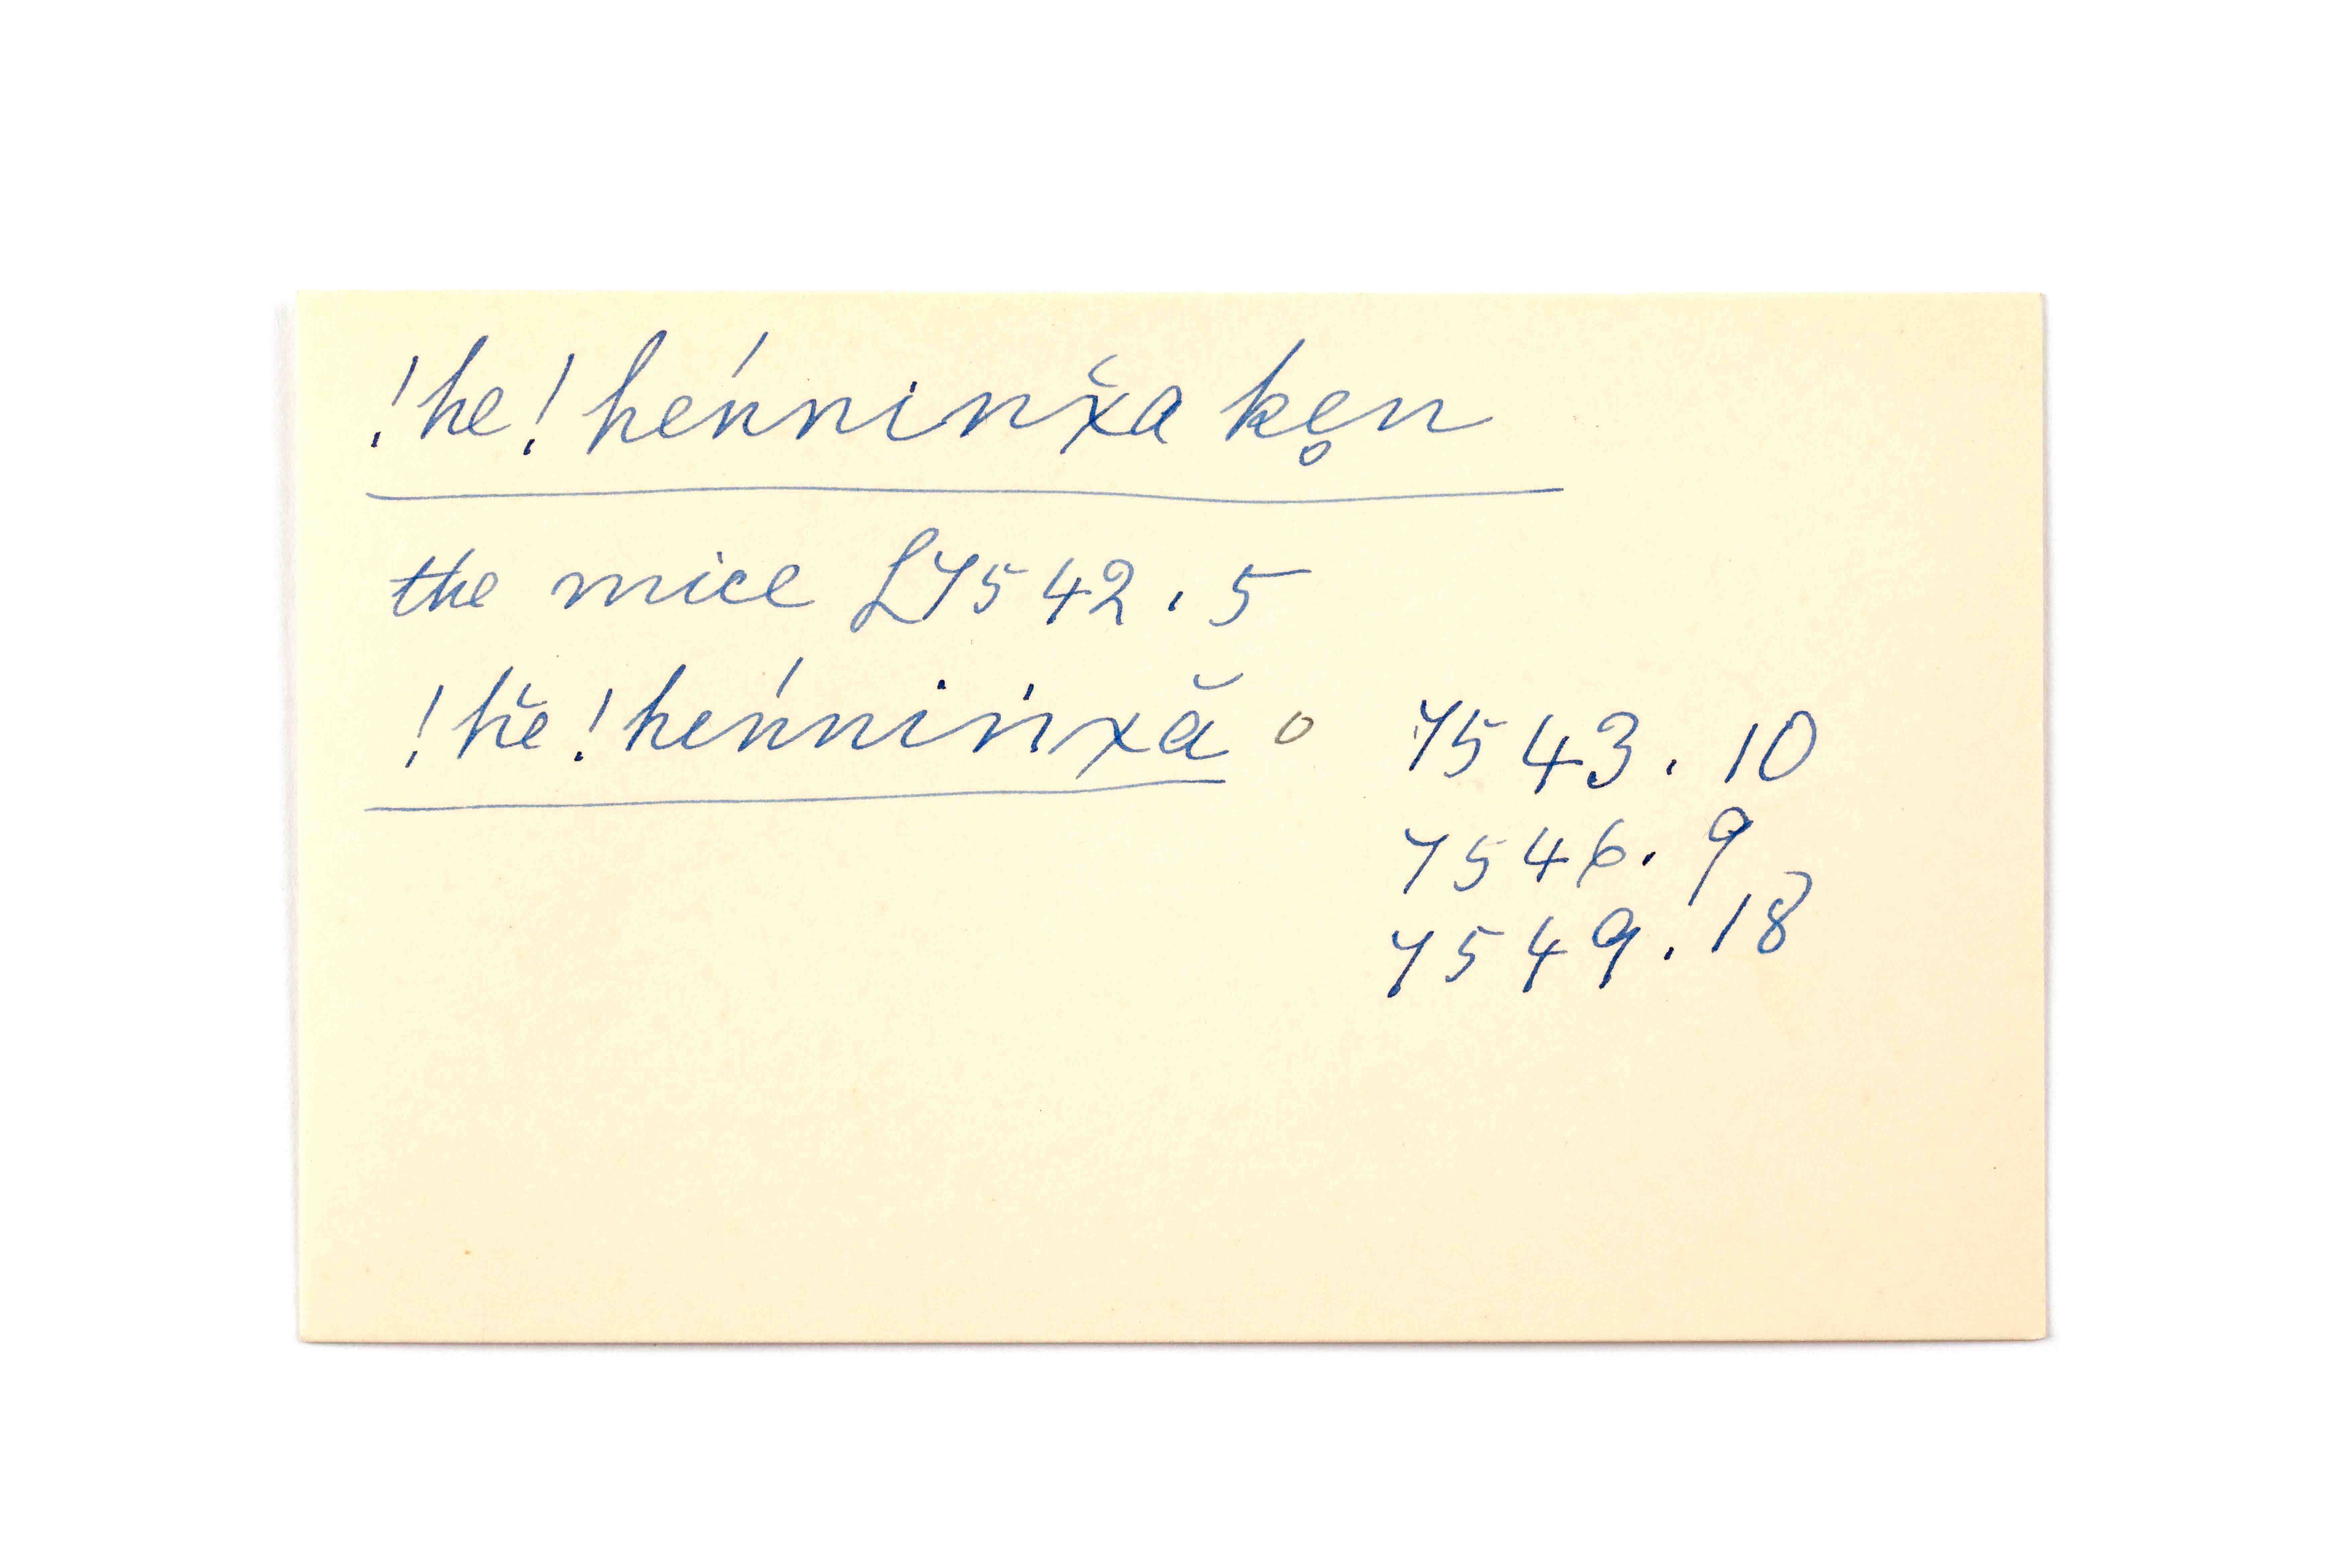 !he!hénninx̆a ke̥n
the mice L7542.5
!hĕ!hénninxă o 7543.10
7546.9
7549.18